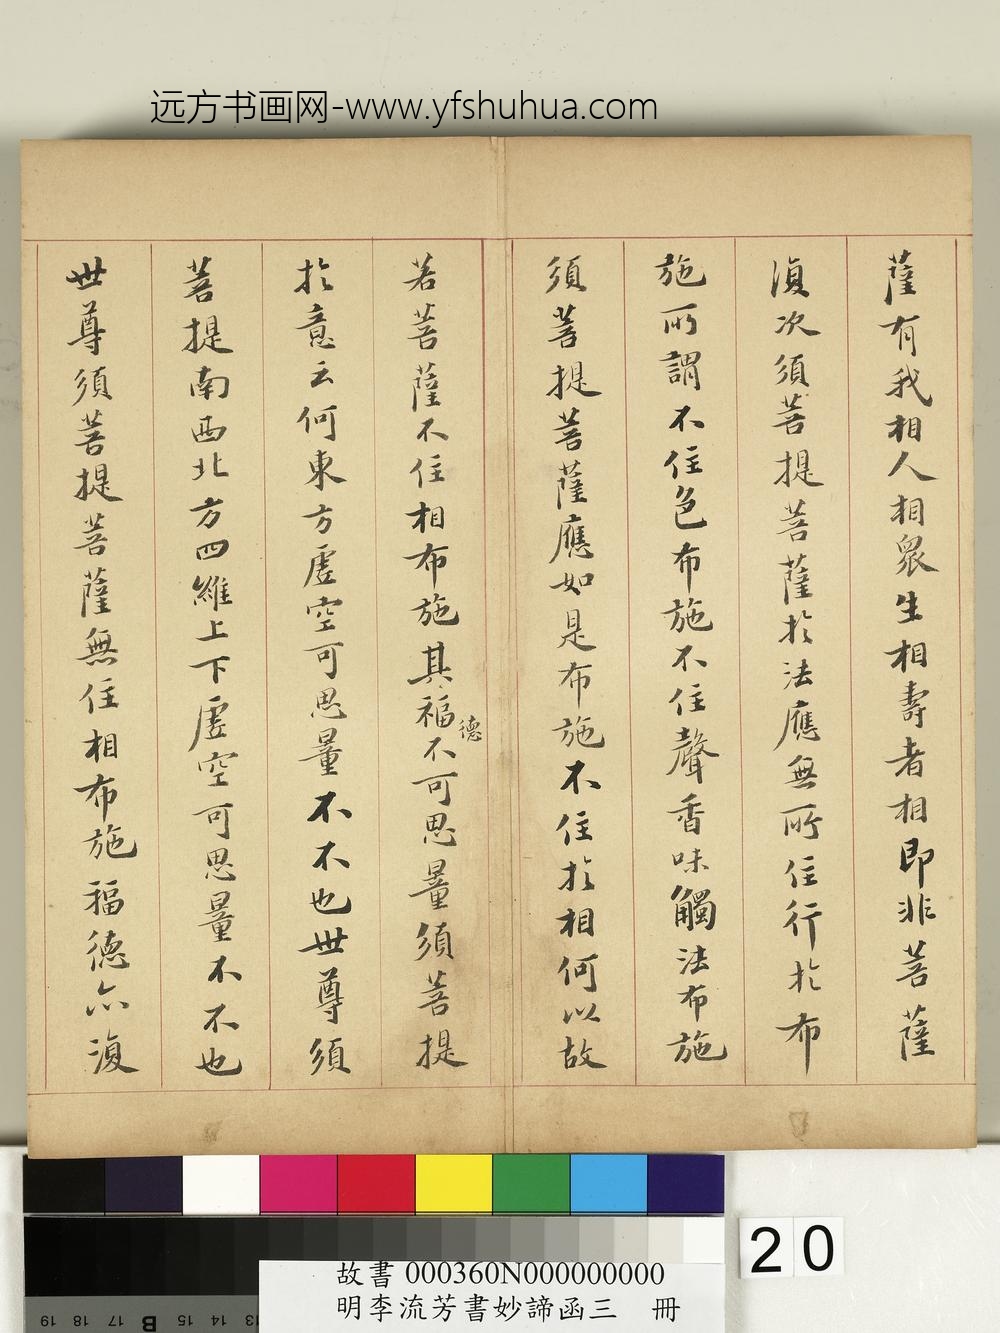 远方书画网-www.yfshuhua.com
薩有我相人相衆生相壽者相即非菩薩
復次須菩提菩薩於法應無所住行於布
施所謂不住色布施不住聲香味觸法布施
須菩提菩薩應如是布施不住於相何以故
若菩薩不住相布施其福德不可思量須菩提
於意云何東方虛空可思量不不也世尊須
菩提南西北方四維上下虛空可思量不不也
世尊須菩提菩薩無住相布施福德亦復
20
故書 000360N000000000
明李流芳書妙諦函三 冊
19 18 17 B 15 14 13